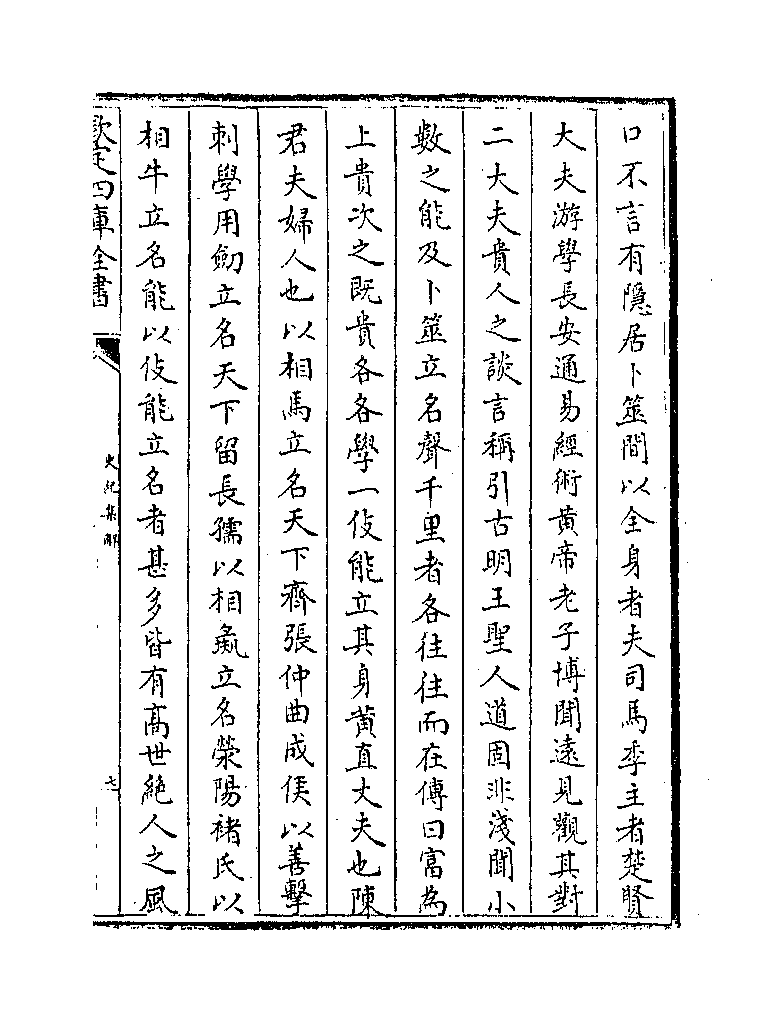 口不言有隱居卜筮間以全身者夫司馬季主者楚賢
大夫游學長安通易經術黄帝老子博聞遠見觀其對
二大夫貴人之談言稱引古明王聖人道固非淺聞小
數之能及卜筮立名聲千里者各往往而在傳曰富為
上貴次之既貴各各學一伎能立其身黄直丈夫也陳
君夫婦人也以相馬立名天下齊張仲曲成侯以善擊
刺學用劒立名天下留長孺以相彘立名滎陽禇氏以
相牛立名能以伎能立名者甚多皆有髙世絶人之風
欽定四庫全書
史記集解
七